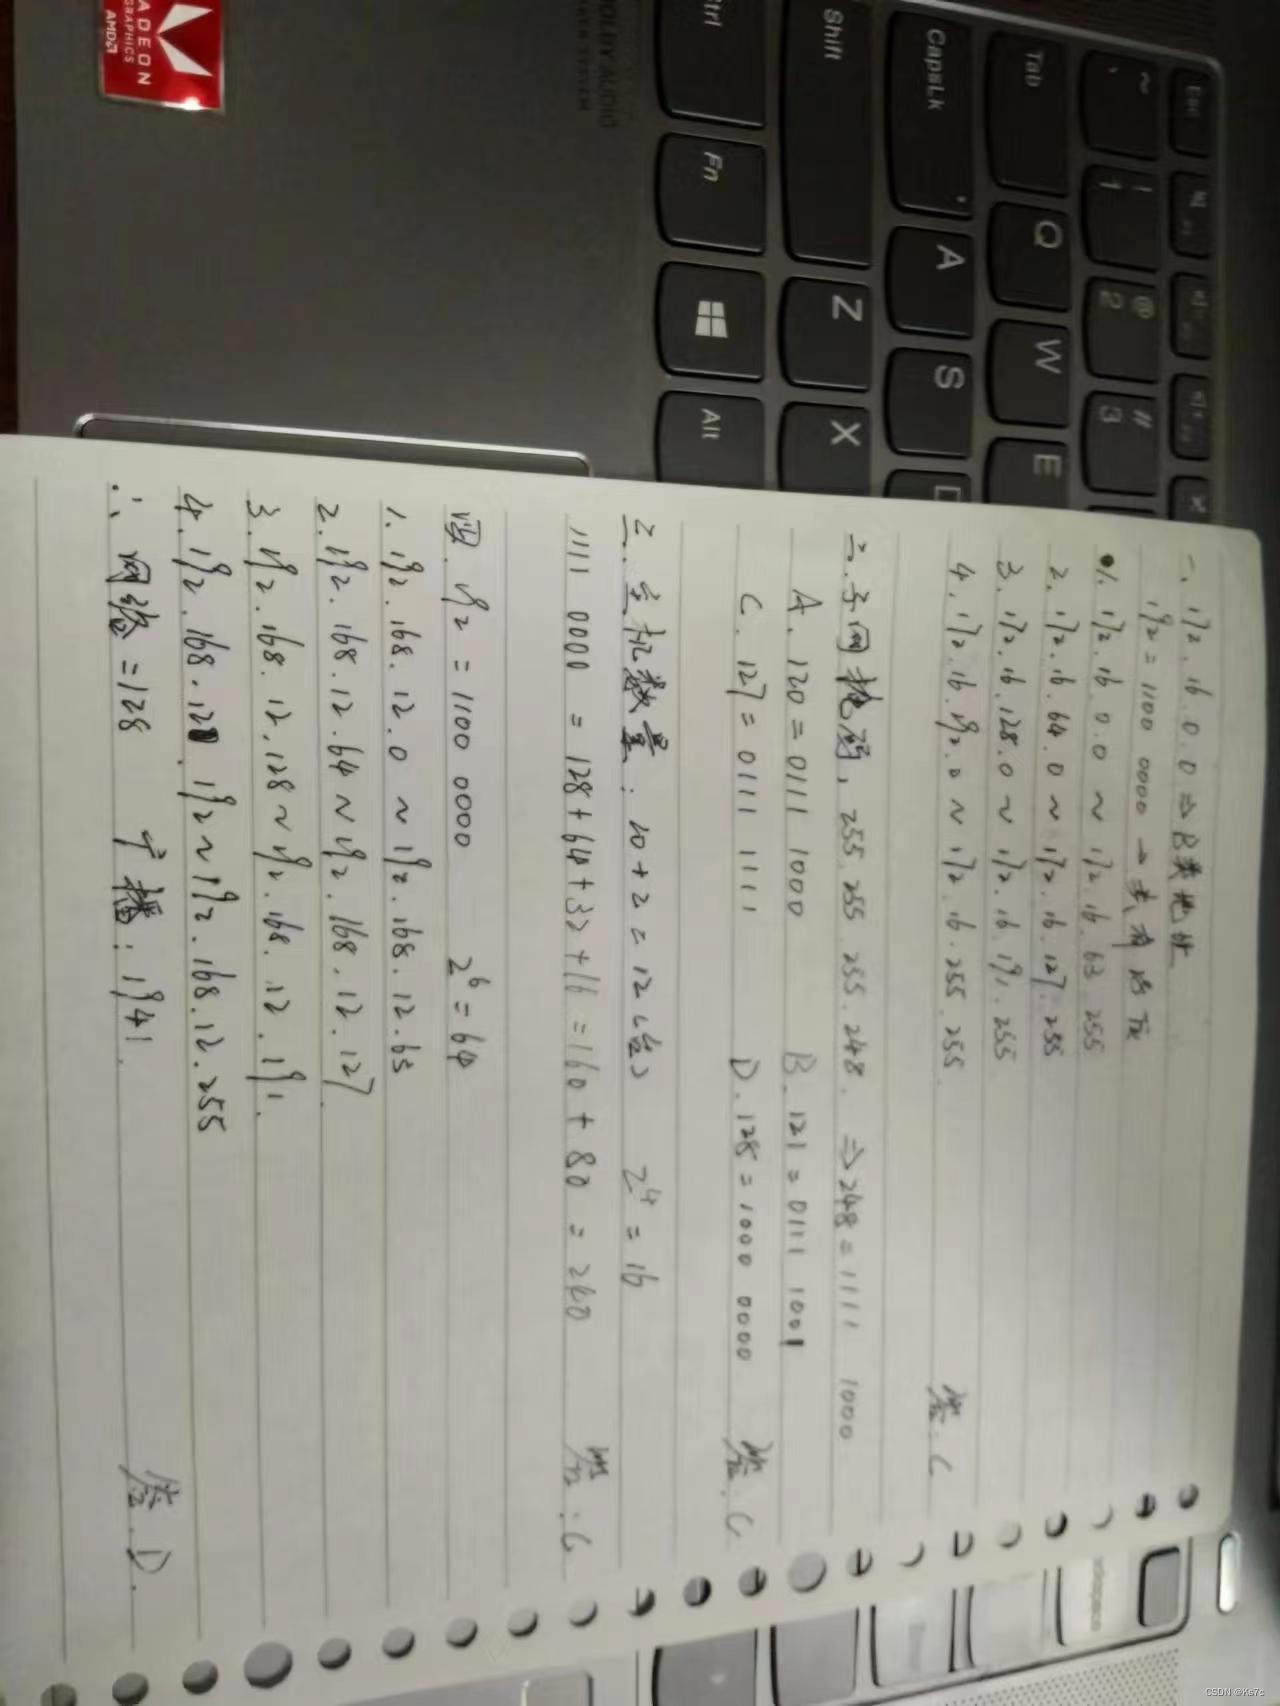 一. 172.16.0.0 ⇒ B类地址
192 = 1100 0000 →
1. 172.16.0.0 ~ 172.16.63.255
2. 172.16.64.0 ~ 172.16.127.255
3. 172.16.128.0 ~ 172.16.191.255
4. 172.16.192.0 ~ 172.16.255.255.
答: C
二. 子网掩码, 255.255.255.248. ⇒ 248 = 1111 1000
A. 120 = 0111 1000 B. 121 = 0111 1001
C. 127 = 0111 1111 D. 128 = 1000 0000 答. C
三. 主机数量: 10+2=12(台) 2^4 = 16
1111 0000 = 128+64+32+16 = 160+80 = 240 答: C
四. 192 = 1100 0000 2^6 = 64
1. 192.168.12.0 ~ 192.168.12.63
2. 192.168.12.64 ~ 192.168.12.127.
3. 192.168.12.128 ~ 192.168.12.191.
4. 192.168.12.192 ~ 192.168.12.255
∴ 网络 = 128 广播: 191. 答. D.
RADEON
GRAPHICS
AMD
DOLBY AUDIO
Esc
~ `
! 1
@ 2
# 3
Tab
Q
W
E
CapsLk
A
S
D
Shift
Z
X
Ctrl
Fn
Alt
CSDN @Ks7c